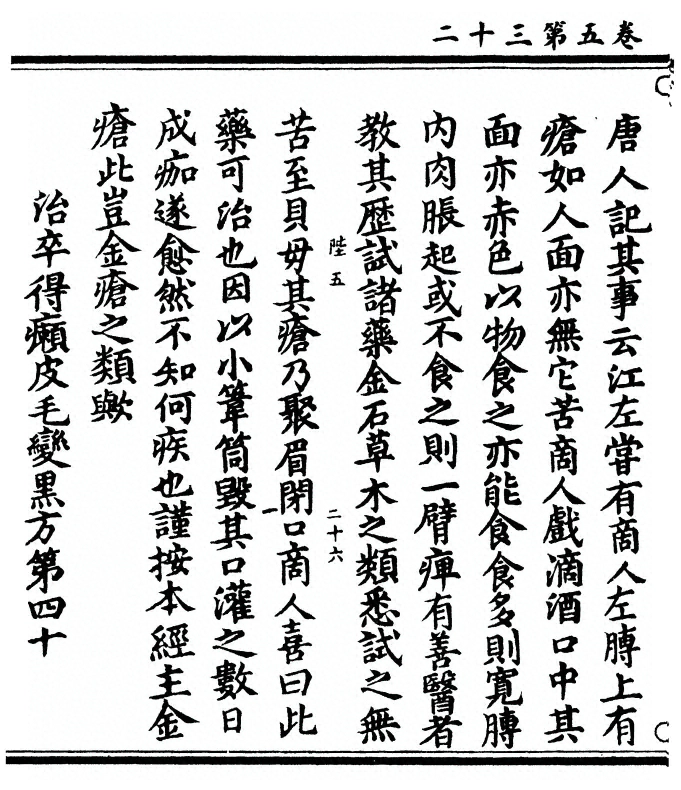 卷五第三十二
唐人記其事云江左嘗有商人左膊上有
瘡如人面亦無它苦商人戲滴酒口中其
面亦赤色以物食之亦能食食多則寬膊
內肉脹起或不食之則一臂痺有善醫者
教其歷試諸藥金石草木之類悉試之無
陛五
二十六
苦至貝母其瘡乃聚眉閉口商人喜曰此
藥可治也因以小葦筒毀其口灌之數日
成痂遂愈然不知何疾也謹按本經主金
瘡此豈金瘡之類歟
治卒得癩皮毛變黑方第四十